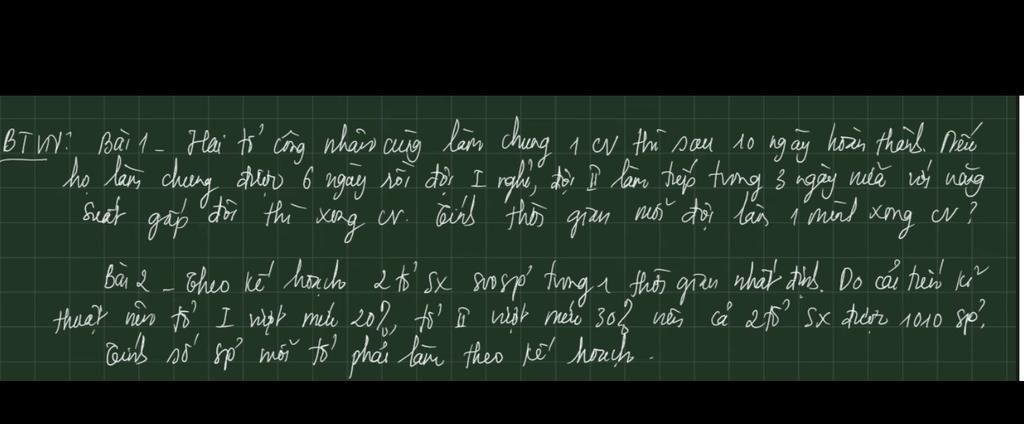 BTVN: Bài 1 - Hai tổ công nhân cùng làm chung 1 CV thì sau 10 ngày hoàn thành. Nếu
họ làm chung được 6 ngày rồi đội I nghỉ, đội II làm tiếp trong 3 ngày nữa với năng
suất gấp đôi thì xong CV. Tính thời gian mỗi đội làm 1 mình xong CV?
Bài 2 - Theo kế hoạch 2 tổ SX 800sp trong 1 thời gian nhất định. Do cải tiến kĩ
thuật nên tổ I vượt mức 20%, tổ II vượt mức 30% nên cả 2 tổ SX được 1010 sp.
Tính số sp mỗi tổ phải làm theo kế hoạch.